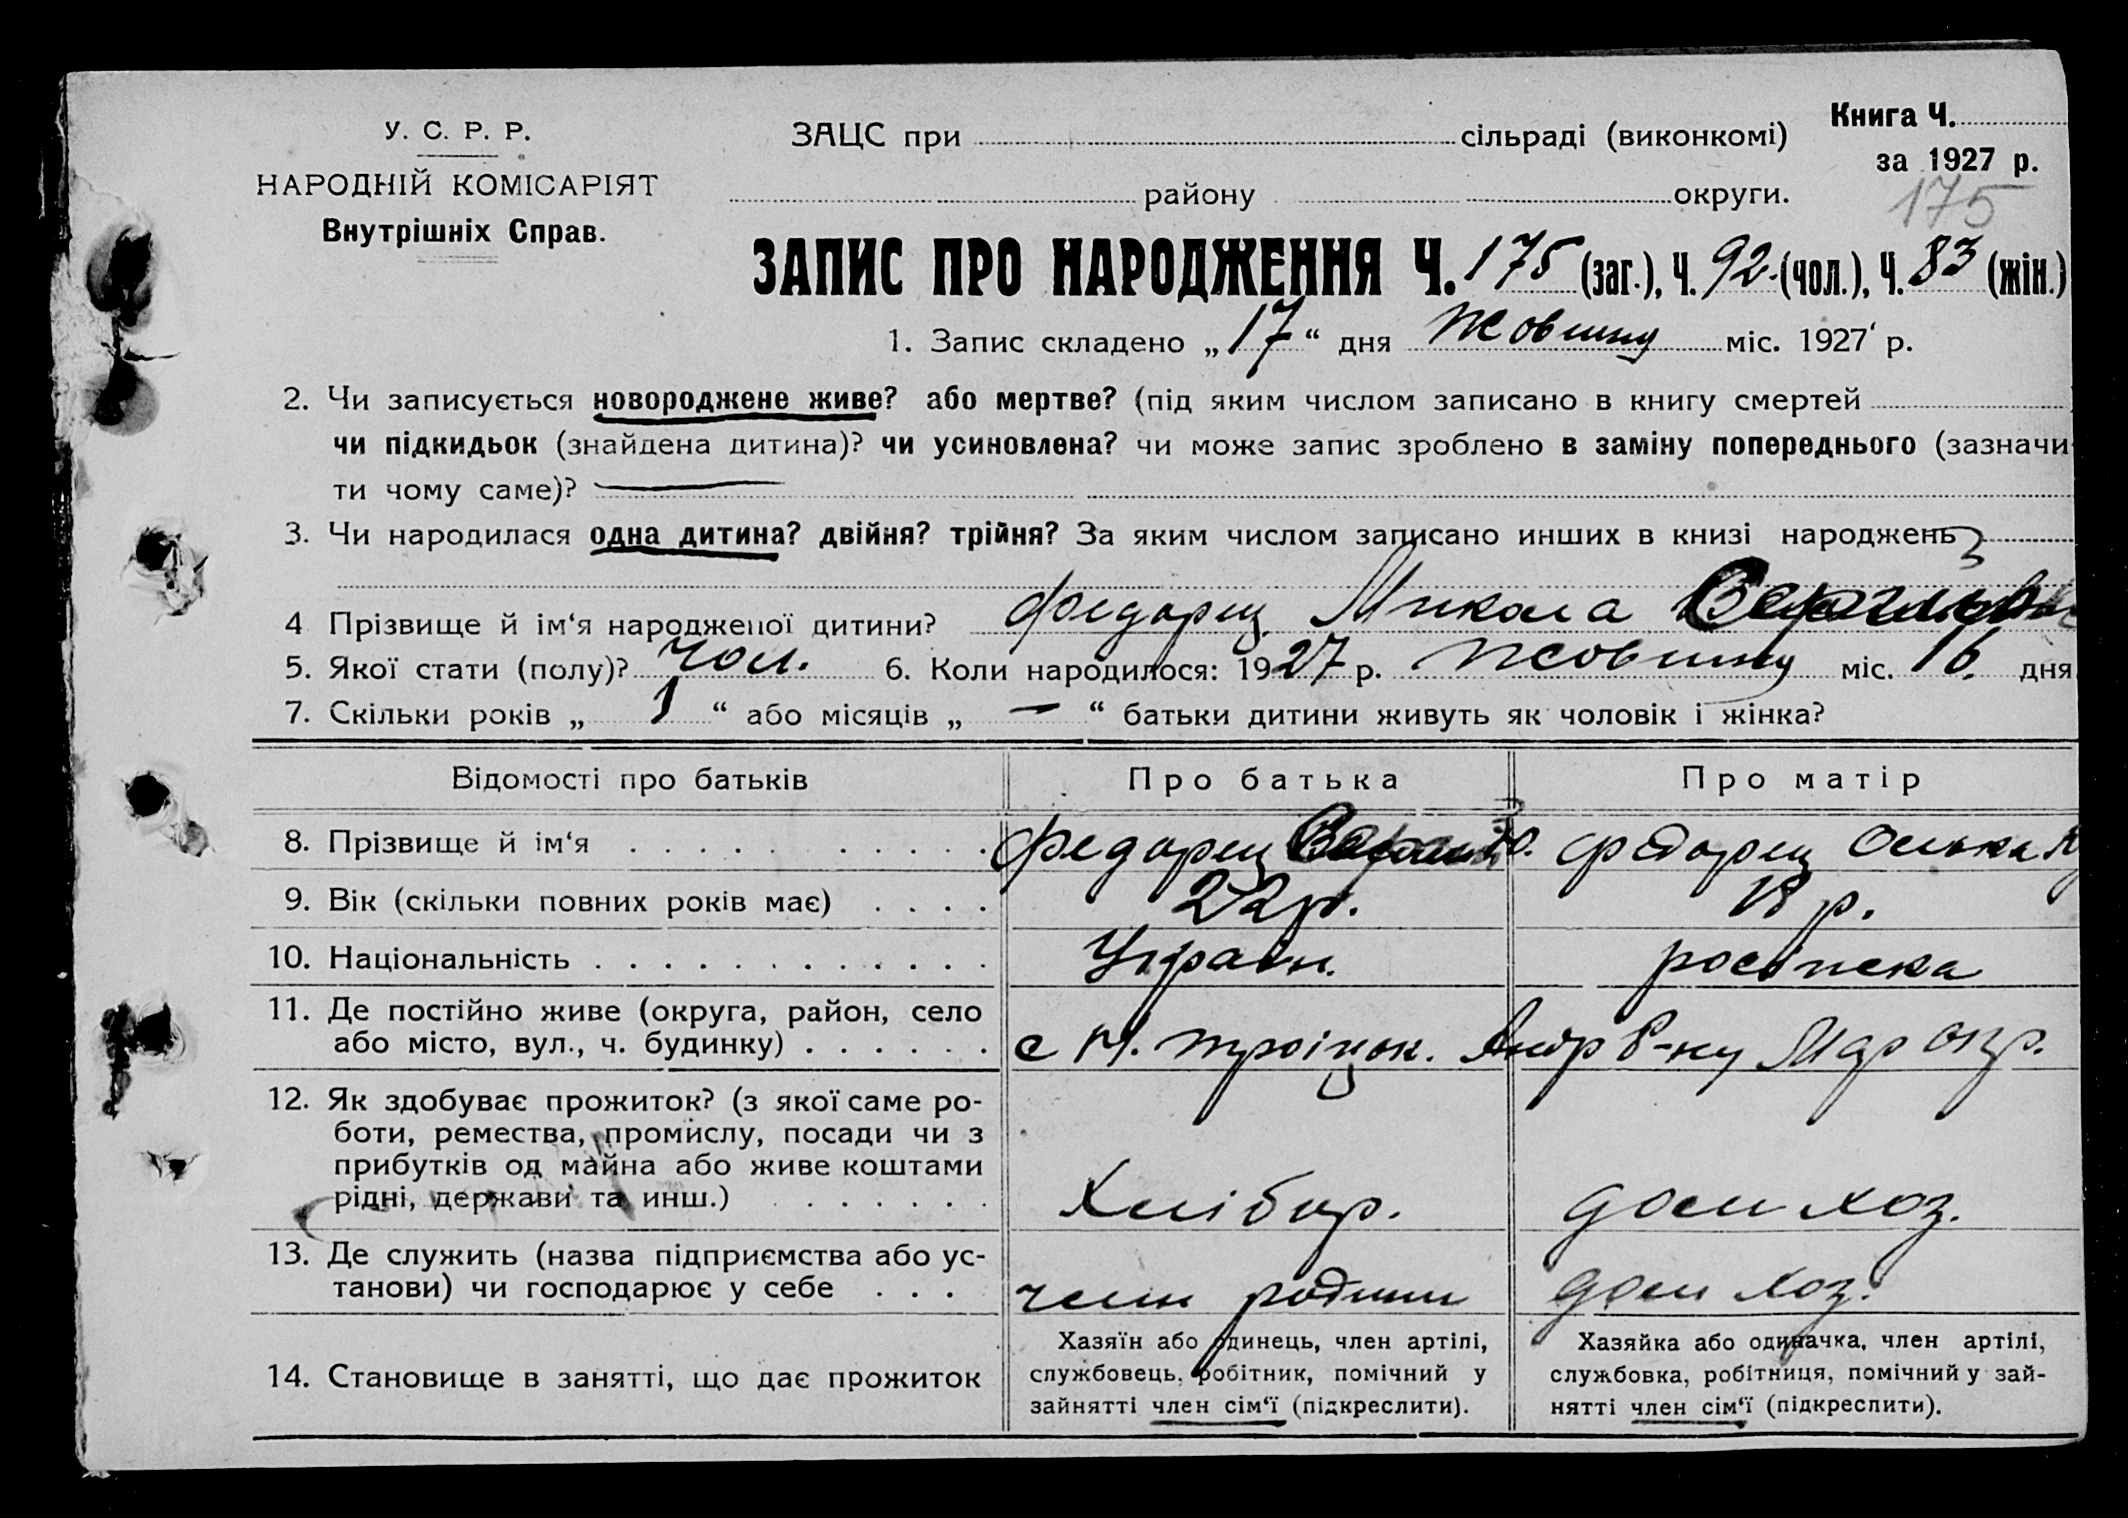 У. С. Р. Р.
НАРОДНІЙ КОМІСАРІЯТ
Внутрішніх Справ.
ЗАЦС при сільраді (виконкомі)
району округи.
Книга Ч.
за 1927 р.
175
ЗАПИС ПРО НАРОДЖЕННЯ Ч. 175 (заг.), Ч. 92 (чол.), Ч. 83 (жін.)
1. Запис складено „17“ дня Жовтня міс. 1927 р.
2. Чи записується новороджене живе? або мертве? (під яким числом записано в книгу смертей
чи підкидьок (знайдена дитина)? чи усиновлена? чи може запис зроблено в заміну попереднього (зазначи
ти чому саме)? —
3. Чи народилася одна дитина? двійня? трійня? За яким числом записано инших в книзі народжень
4 Прізвище й ім‘я народженої дитини? Федорец Микола
5. Якої стати (полу)? чол. 6. Коли народилося: 1927 р. Жовтня міс. 16 дня
7. Скільки років „ 1 “ або місяців „ — “ батьки дитини живуть як чоловік і жінка?
Відомості про батьків Про батька Про матір
8. Прізвище й ім‘я Федорец Федорец
9. Вік (скільки повних років має) 22 р. 18 р.
10. Національність Україн. росіпска
11. Де постійно живе (округа, район, село
або місто, вул., ч. будинку) с Н. троіцьк. Андр Р-ну Мар окр.
12. Як здобуває прожиток? (з якої саме ро-
боти, ремества, промислу, посади чи з
прибутків од майна або живе коштами
рідні, держави та инш.) Хлібор. дом хоз.
13. Де служить (назва підприємства або ус-
танови) чи господарює у себе член родини дом хоз.
14. Становище в занятті, що дає прожиток
Хазяїн або одинець, член артілі,
службовець, робітник, помічний у
зайнятті член сім‘ї (підкреслити).
Хазяйка або одиначка, член артілі,
службовка, робітниця, помічний у зай-
нятті член сім‘ї (підкреслити).